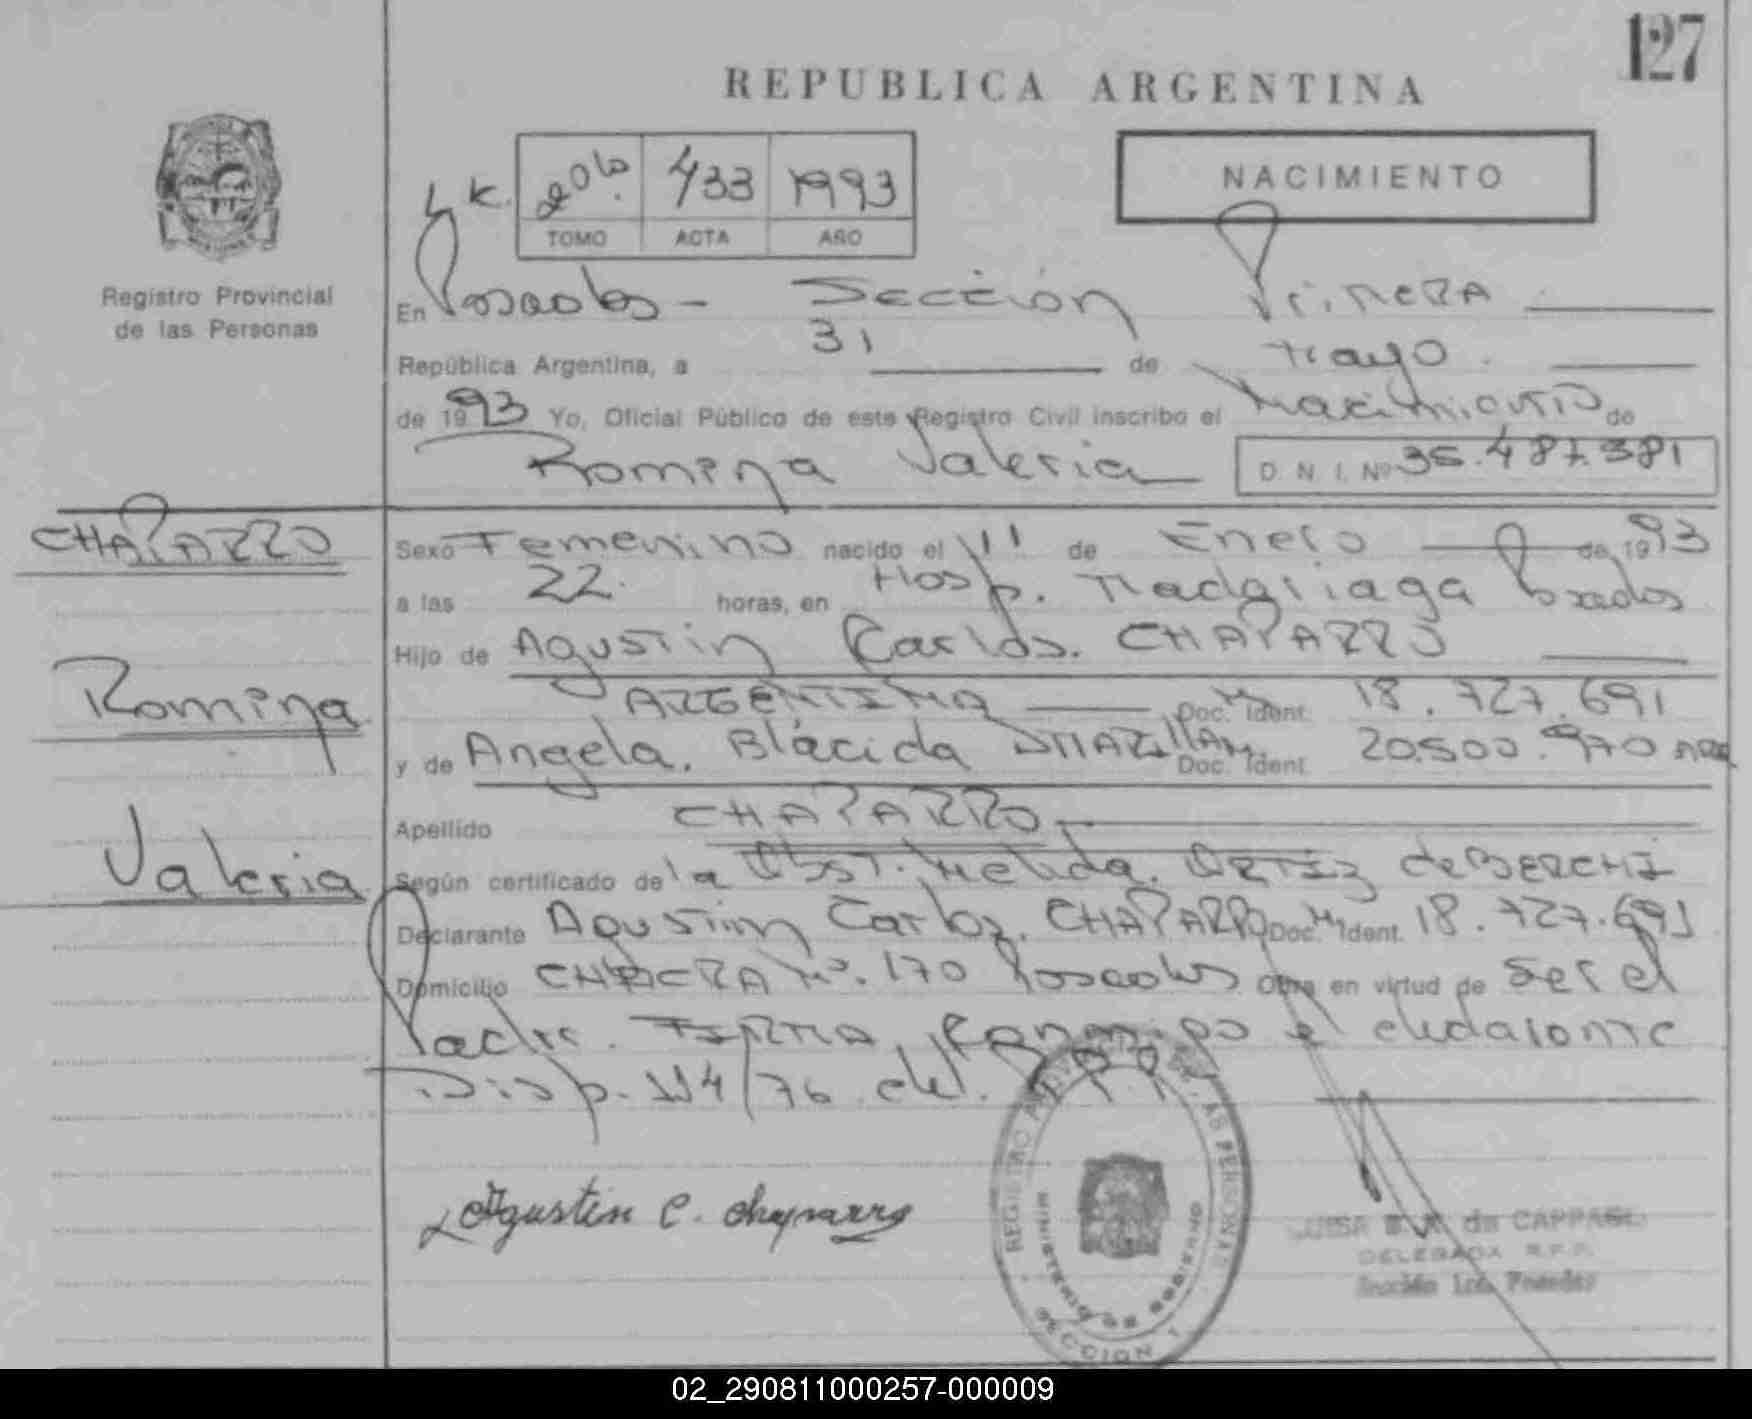 127
REPUBLICA ARGENTINA
NACIMIENTO
433 1993
TOMO ACTA AÑO
Registro Provincial
de las Personas
En Posadas - Sección Primera
República Argentina, a 31 de Mayo
de 1993 Yo, Oficial Público de este Registro Civil inscribo el Nacimiento de
Romina Valeria D. N. I. Nº 36.487.381
CHAPARRO
Romina
Valeria
Sexo Femenino nacido el 11 de Enero de 1993
a las 22 horas, en Hosp. Madariaga Posadas
Hijo de Agustin Carlos. CHAPARRO
ARGENTINA Doc. Ident. 18.727.691
y de Angela. Blácida Doc. Ident. 20.500.970
Apellido CHAPARRO
Según certificado de la Obst. Nelida. ORTIZ de BERCHI
Declarante Agustin Carlos. CHAPARRO Doc. Ident. 18.727.691
Domicilio CHACRA Nº. 170 Posadas Obra en virtud de ser el
Padre. FIRMA el
Disp. 114/76 del. R.P.P.
Agustin C. Chaparro
REGISTRO PROVINCIAL DE LAS PERSONAS
MINISTERIO DE GOBIERNO
SECCION 1
LUISA de
DELEGADA R.P.P.
Sección 1ra. Posadas
02_290811000257-000009